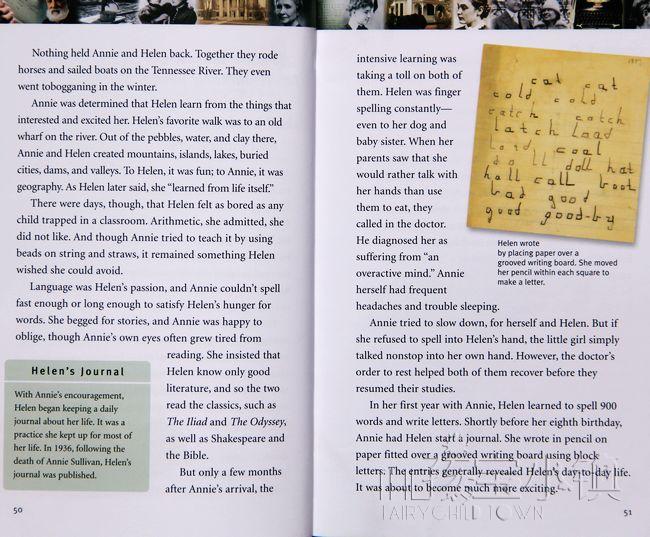 Nothing held Annie and Helen back. Together they rode
horses and sailed boats on the Tennessee River. They even
went tobogganing in the winter.
Annie was determined that Helen learn from the things that
interested and excited her. Helen's favorite walk was to an old
wharf on the river. Out of the pebbles, water, and clay there,
Annie and Helen created mountains, islands, lakes, buried
cities, dams, and valleys. To Helen, it was fun; to Annie, it was
geography. As Helen later said, she "learned from life itself."
There were days, though, that Helen felt as bored as any
child trapped in a classroom. Arithmetic, she admitted, she
did not like. And though Annie tried to teach it by using
beads on string and straws, it remained something Helen
wished she could avoid.
Language was Helen's passion, and Annie couldn't spell
fast enough or long enough to satisfy Helen's hunger for
words. She begged for stories, and Annie was happy to
oblige, though Annie's own eyes often grew tired from
reading. She insisted that
Helen know only good
literature, and so the two
read the classics, such as
The Iliad and The Odyssey,
as well as Shakespeare and
the Bible.
But only a few months
after Annie's arrival, the
Helen's Journal
With Annie's encouragement,
Helen began keeping a daily
journal about her life. It was a
practice she kept up for most of
her life. In 1936, following the
death of Annie Sullivan, Helen's
journal was published.
50
intensive learning was
taking a toll on both of
them. Helen was finger
spelling constantly—
even to her dog and
baby sister. When her
parents saw that she
would rather talk with
her hands than use
them to eat, they
called in the doctor.
He diagnosed her as
suffering from "an
overactive mind." Annie
herself had frequent
headaches and trouble sleeping.
cat cat
cold cold
catch catch
latch load
lord coal
doll doll hat
hall call boot
bad good
good good-by
Helen wrote
by placing paper over a
grooved writing board. She moved
her pencil within each square to
make a letter.
Annie tried to slow down, for herself and Helen. But if
she refused to spell into Helen's hand, the little girl simply
talked nonstop into her own hand. However, the doctor's
order to rest helped both of them recover before they
resumed their studies.
In her first year with Annie, Helen learned to spell 900
words and write letters. Shortly before her eighth birthday,
Annie had Helen start a journal. She wrote in pencil on
paper fitted over a grooved writing board using block
letters. The entries generally revealed Helen's day-to-day life.
It was about to become much more exciting.
51
FAIRYCHILD TOWN